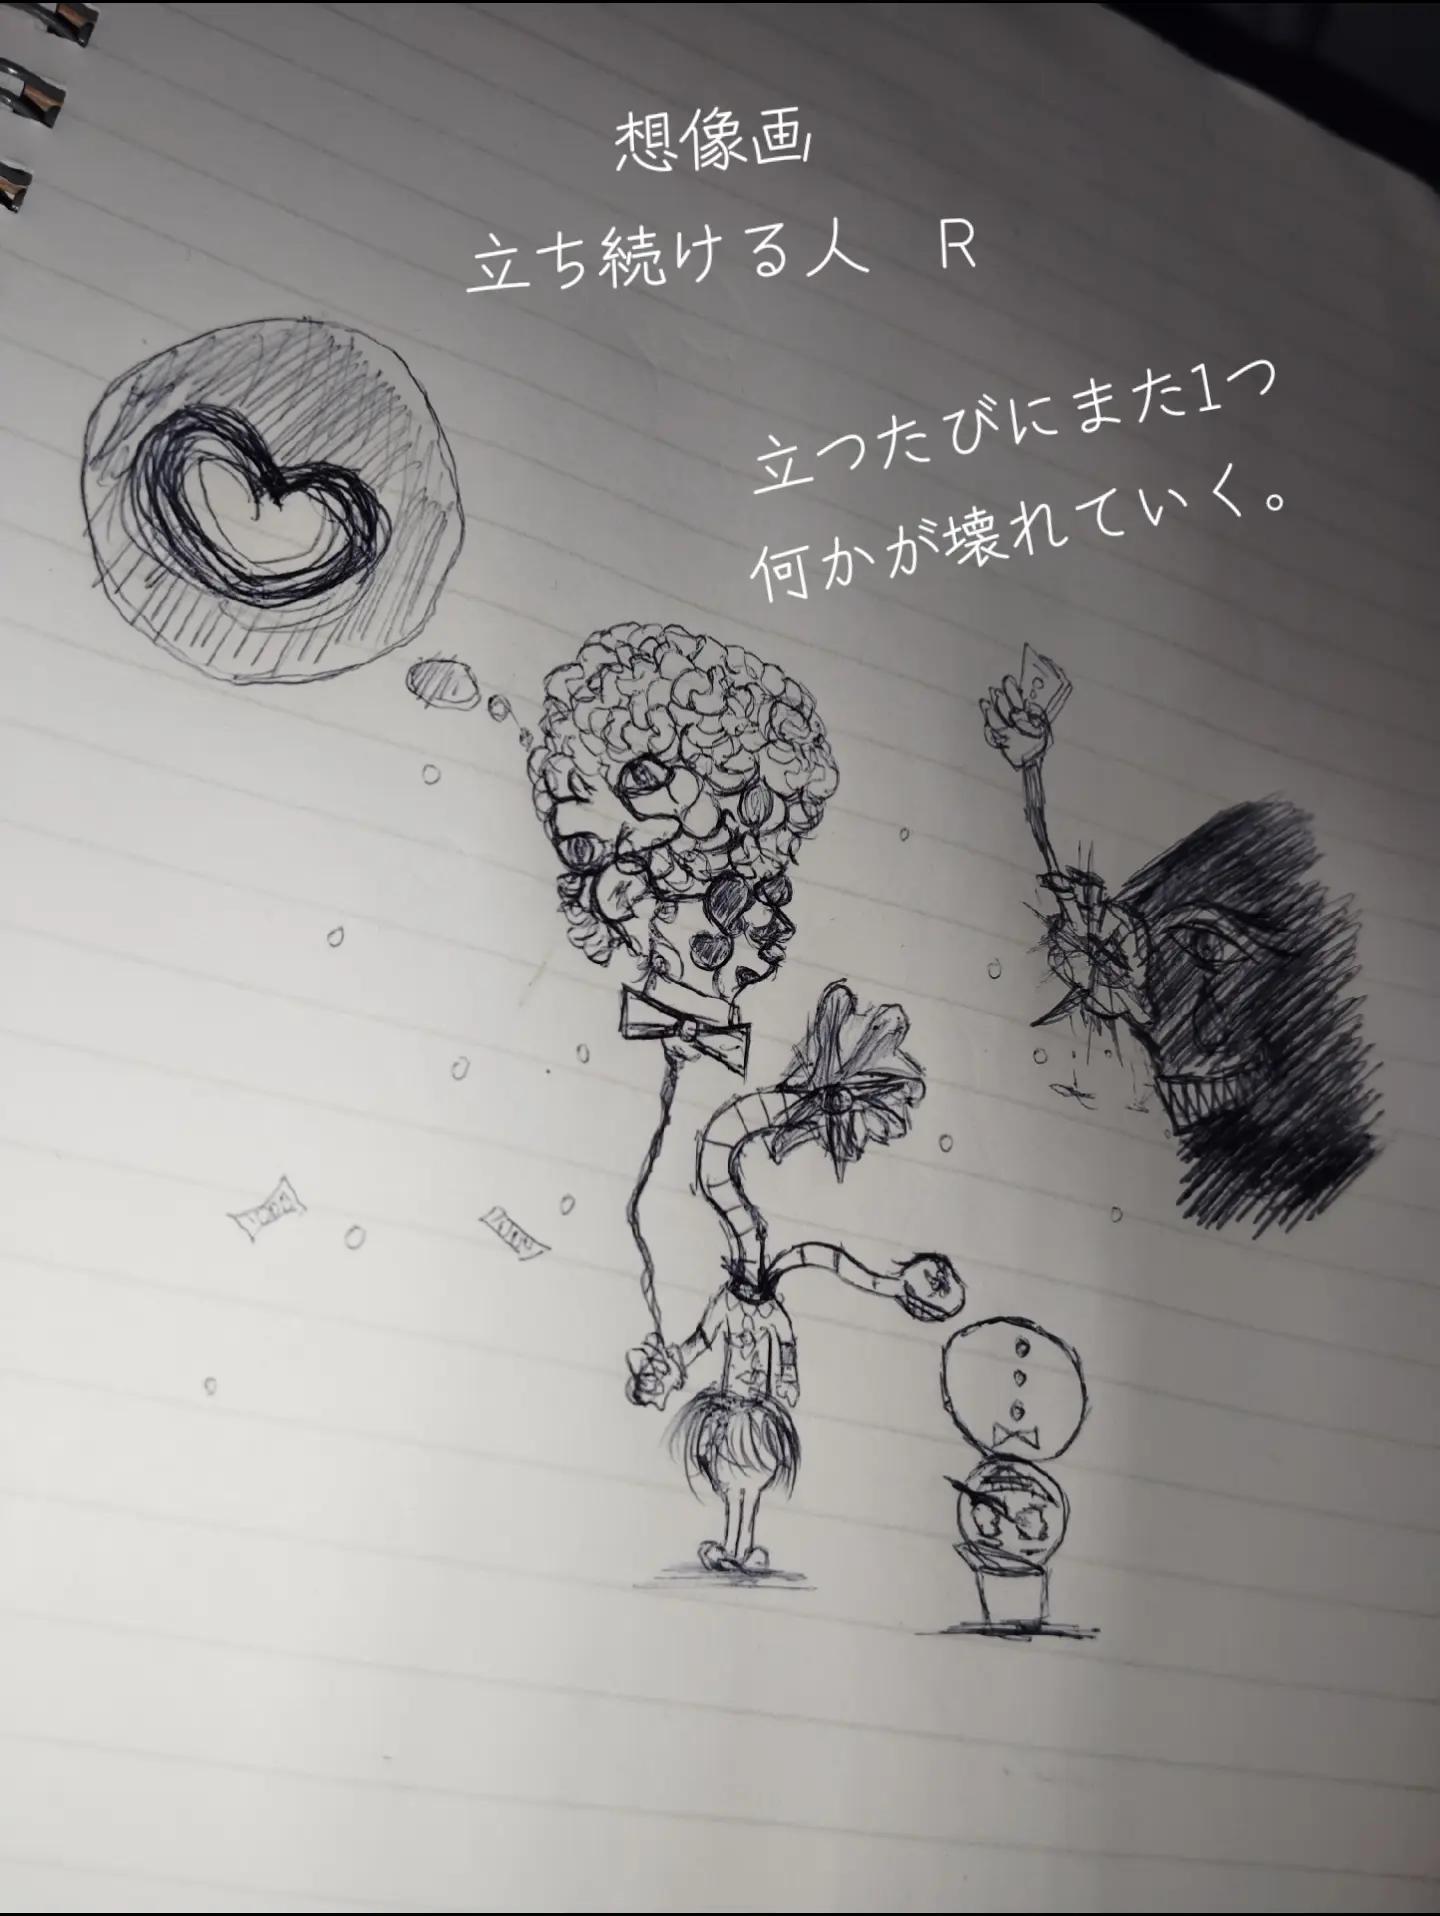 想像画
立ち続ける人　R
立つたびにまた1つ
何かが壊れていく。